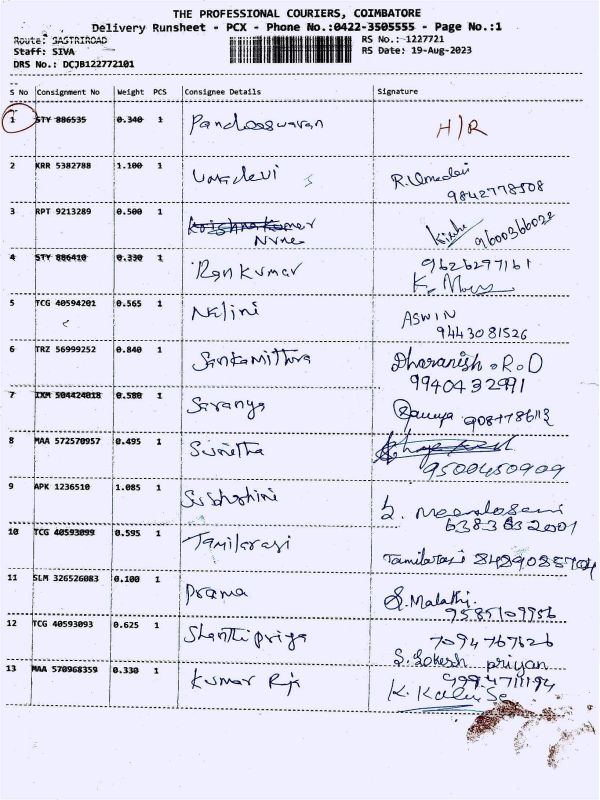 THE PROFESSIONAL COURIERS, COIMBATORE
Delivery Runsheet - PCX - Phone No.:0422-3505555 - Page No.:1
Route: SASTRIROAD
RS No.:-1227721
Staff: SIVA
RS Date: 19-Aug-2023
DRS No.: DCJB122772101
S No Consignment No Weight PCS Consignee Details Signature
1 STY 886535 0.340 1 H/R
2 KRR 5382788 1.100 1 Umadevi R. Umadevi
9842778508
3 RPT 9213289 0.500 1
9600366022
4 STY 886410 0.330 1 Ram Kumar 9626277161
5 TCG 40594201 0.565 1 Nalini ASWIN
9443081526
6 TRZ 56999252 0.840 1 Sankamithra Dharanish.R.D
9940432991
7 IXM 504424018 0.580 1 Saranya
8 MAA 572570957 0.495 1 Sunitha
9500450909
9 APK 1236510 1.085 1
6383632001
10 TCG 40593099 0.595 1 Tamilarasi Tamilarasi 8489085704
11 SLM 326526083 0.100 1 Prama S. Malathi
9585109956
12 TCG 40593093 0.625 1 Shanthi priya 7094767626
S. Lokesh priyan
13 MAA 570968359 0.330 1 Kumar Raja 9994711194